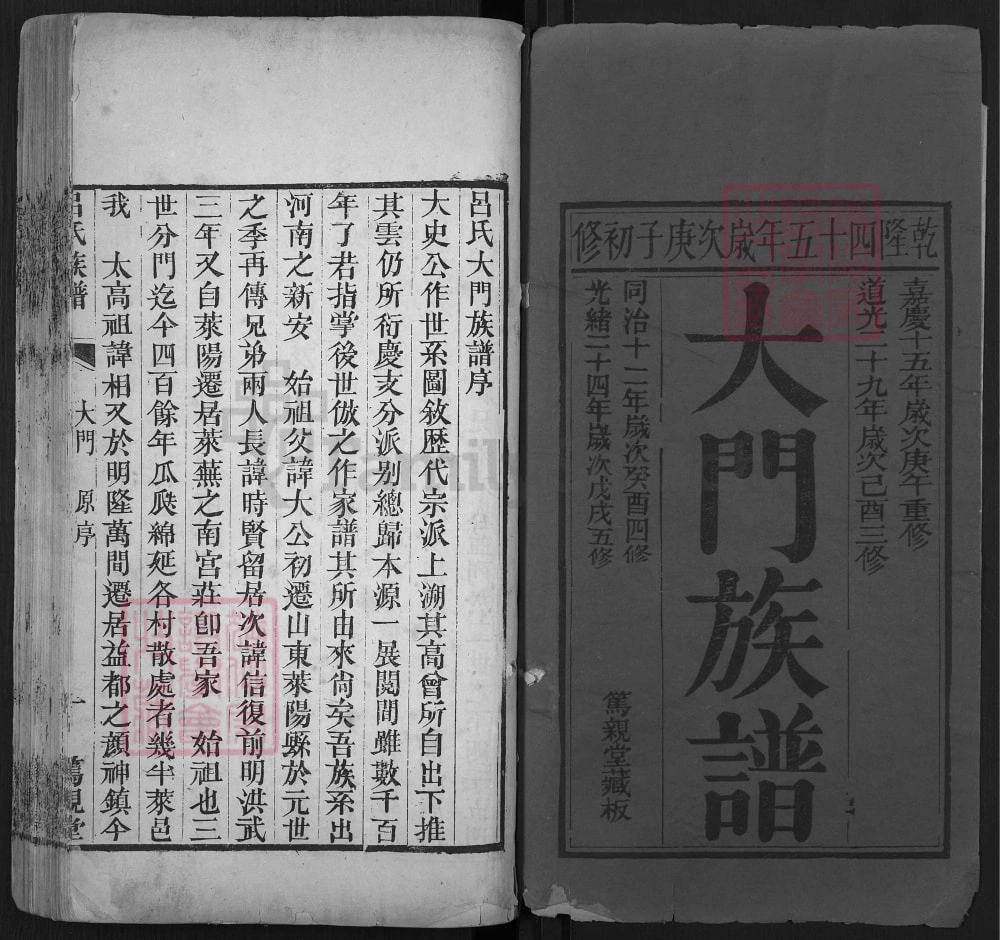 乾隆四十五年歲次庚子初修
嘉慶十五年歲次庚午重修
道光二十九年歲次己酉三修
大門族譜
同治十二年歲次癸酉四修
光緒二十四年歲次戊戌五修
篤親堂藏板
呂氏大門族譜序
大史公作世系圖敘歷代宗派上溯其高曾所自出下推
其雲仍所衍慶支分派別總歸本源一展閱間雖數千百
年了若指掌後世倣之作家譜其所由來尙矣吾族系出
河南之新安 始祖父諱大公初遷山東萊陽縣於元世
之季再傳兄弟兩人長諱時賢留居次諱信復前明洪武
三年又自萊陽遷居萊蕪之南宮莊卽吾家 始祖也三
世分門迄今四百餘年瓜瓞綿延各村散處者幾半萊邑
我 太高祖諱相又於明隆萬間遷居益都之顏神鎮今
呂氏族譜 大門 原序 一 篤親堂